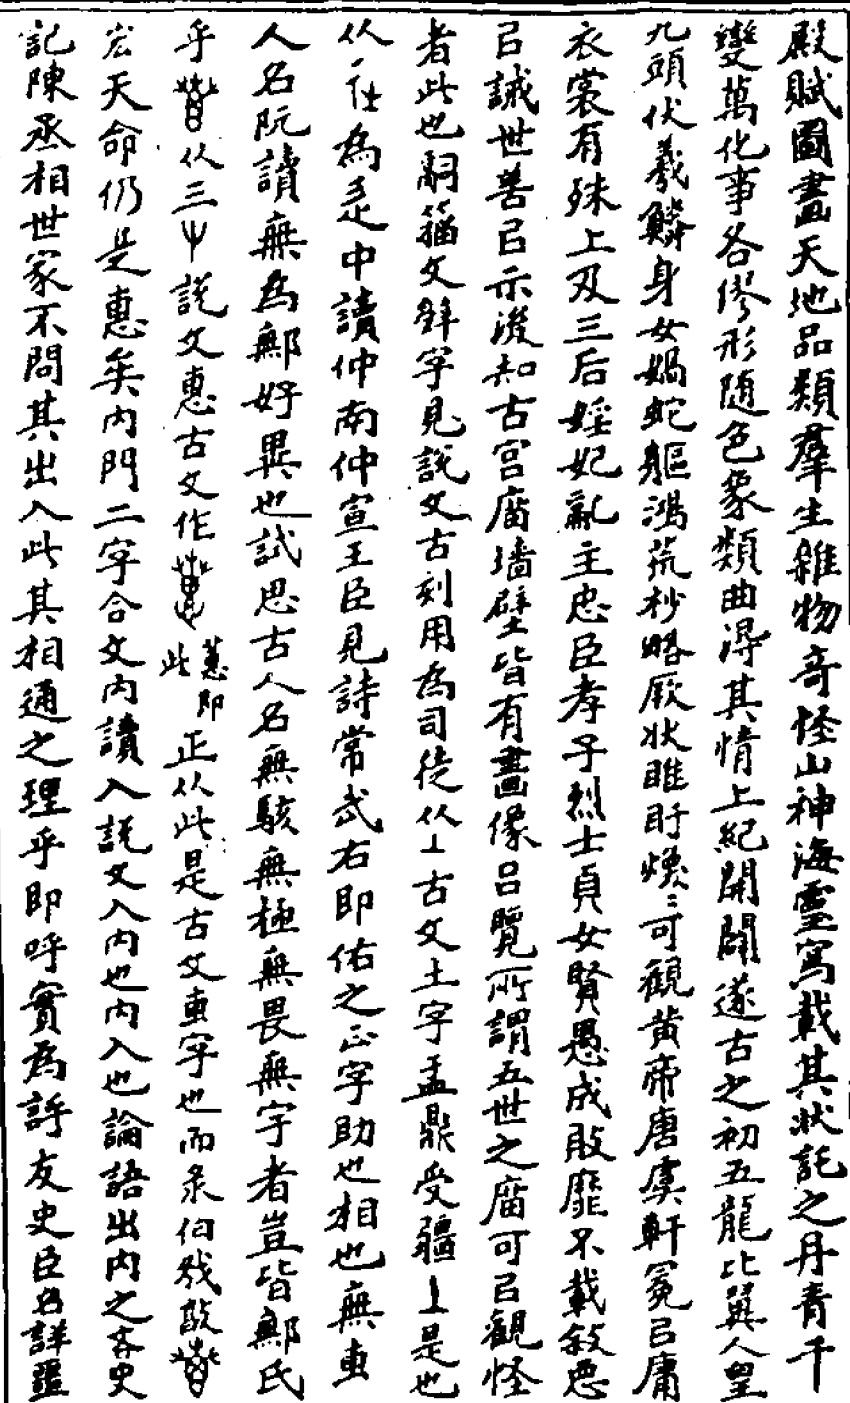 殿賦圖畫天地品類羣生雜物奇怪山神海靈寫載其狀託之丹青千
變萬化事各繆形隨色象類曲淂其情上紀開闢遂古之初五龍比翼人皇
九頭伏羲鱗身女媧蛇軀鴻荒朴略厥狀睢盱煥〻可觀黃帝唐虞軒冕㠯庸
衣裳有殊上及三后婬妃亂主忠臣孝子烈士貞女賢愚成敗靡不載敘惡
㠯誡世善㠯示後知古宮廟墻壁皆有畫像㠯覽所謂五世之廟可㠯觀怪
者此也嗣籀文辭字見說文古刻用為司徒从丄古文土字盂鼎受疆丄是也
从彳在為辵中讀仲南仲宣王臣見詩常武右即佑之正字助也相也無叀
人名阮讀無為鄦好異也試思古人名無駭無極無畏無字者豈皆鄦氏
乎 从三屮說文惠古文作 蕙即此正从此是古文叀字也而彔伯㦰敼
宏天命仍是惠矣內門二字合文內讀入說文入內也內入也論語出內之吝史
記陳丞相世家不問其出入此其相通之理乎即呼實為䛥友史臣名詳䵣